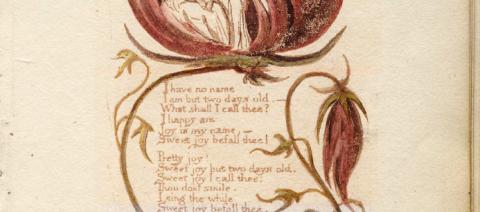 I have no name
I am but two days old.—
What shall I call thee?
I happy am
Joy is my name,—
Sweet joy befall thee!
Pretty joy!
Sweet joy but two days old.
Sweet joy I call thee:
Thou dost smile.
I sing the while
Sweet joy befall thee.